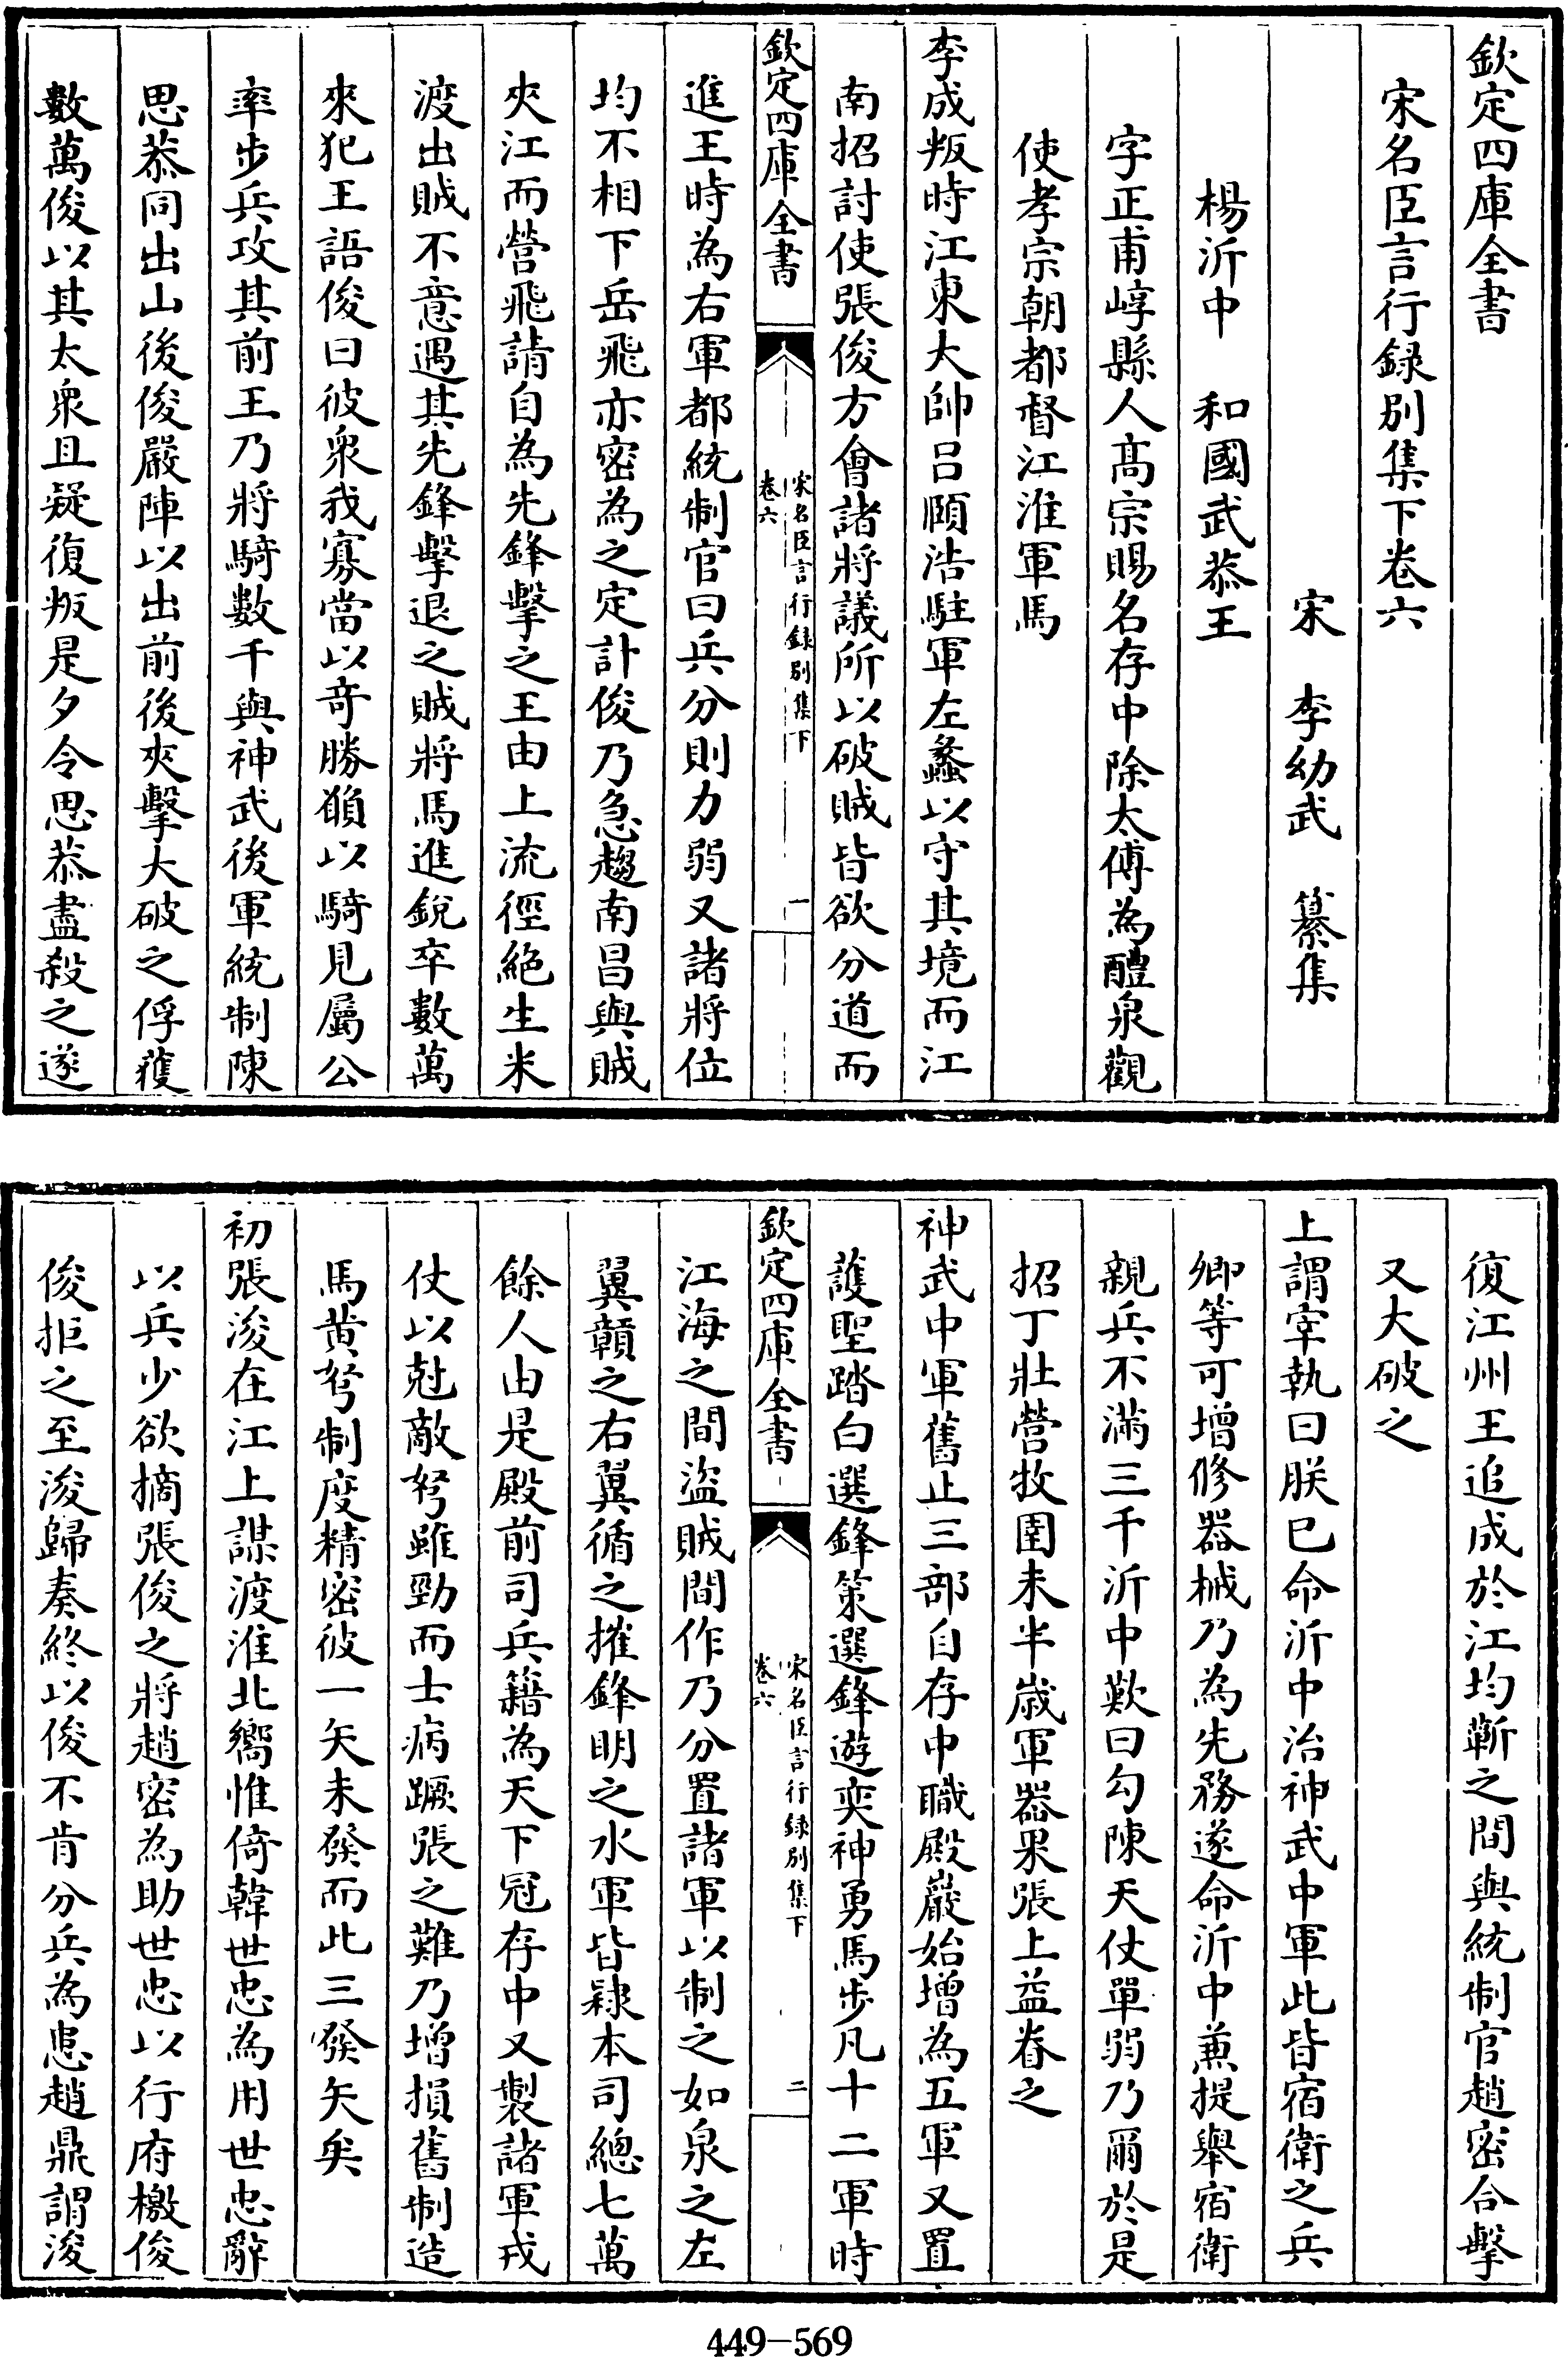 欽定四庫全書
宋名臣言行録别集下卷六
宋　李幼武　纂集
楊沂中　和國武恭王
字正甫崞縣人髙宗賜名存中除太傅為醴泉觀
使孝宗朝都督江淮軍馬
李成叛時江東大帥吕頤浩駐軍左蠡以守其境而江
南招討使張俊方會諸將議所以破賊皆欲分道而
欽定四庫全書
宋名臣言行録别集下
卷六
一
進王時為右軍都統制官曰兵分則力弱又諸將位
均不相下岳飛亦密為之定計俊乃急趨南昌與賊
夾江而營飛請自為先鋒擊之王由上流徑絶生米
渡出賊不意遇其先鋒擊退之賊將馬進鋭卒數萬
來犯王語俊曰彼衆我寡當以竒勝願以騎見屬公
率步兵攻其前王乃將騎數千與神武後軍統制陳
思恭同出山後俊嚴陣以出前後夾擊大破之俘獲
數萬俊以其太衆且疑復叛是夕令思恭盡殺之遂
復江州王追成於江均蘄之間與統制官趙密合擊
又大破之
上謂宰執曰朕已命沂中治神武中軍此皆宿衛之兵
卿等可增修器械乃為先務遂命沂中兼提舉宿衛
親兵不滿三千沂中歎曰勾陳天仗單弱乃爾於是
招丁壯營牧圉未半歲軍器果張上益眷之
神武中軍舊止三部自存中職殿巖始增為五軍又置
護聖踏白選鋒策選鋒遊奕神勇馬步凡十二軍時
欽定四庫全書
宋名臣言行録别集下
卷六
二
江海之間盜賊間作乃分置諸軍以制之如泉之左
翼贑之右翼循之摧鋒明之水軍皆隸本司總七萬
餘人由是殿前司兵籍為天下冠存中又製諸軍戎
仗以尅敵弩雖勁而士病蹶張之難乃增損舊制造
馬黄弩制度精密彼一矢未發而此三發矢矣
初張浚在江上謀渡淮北嚮惟倚韓世忠為用世忠辭
以兵少欲摘張俊之將趙密為助世忠以行府檄俊
俊拒之至浚歸奏終以俊不肯分兵為患趙鼎謂浚
449-569